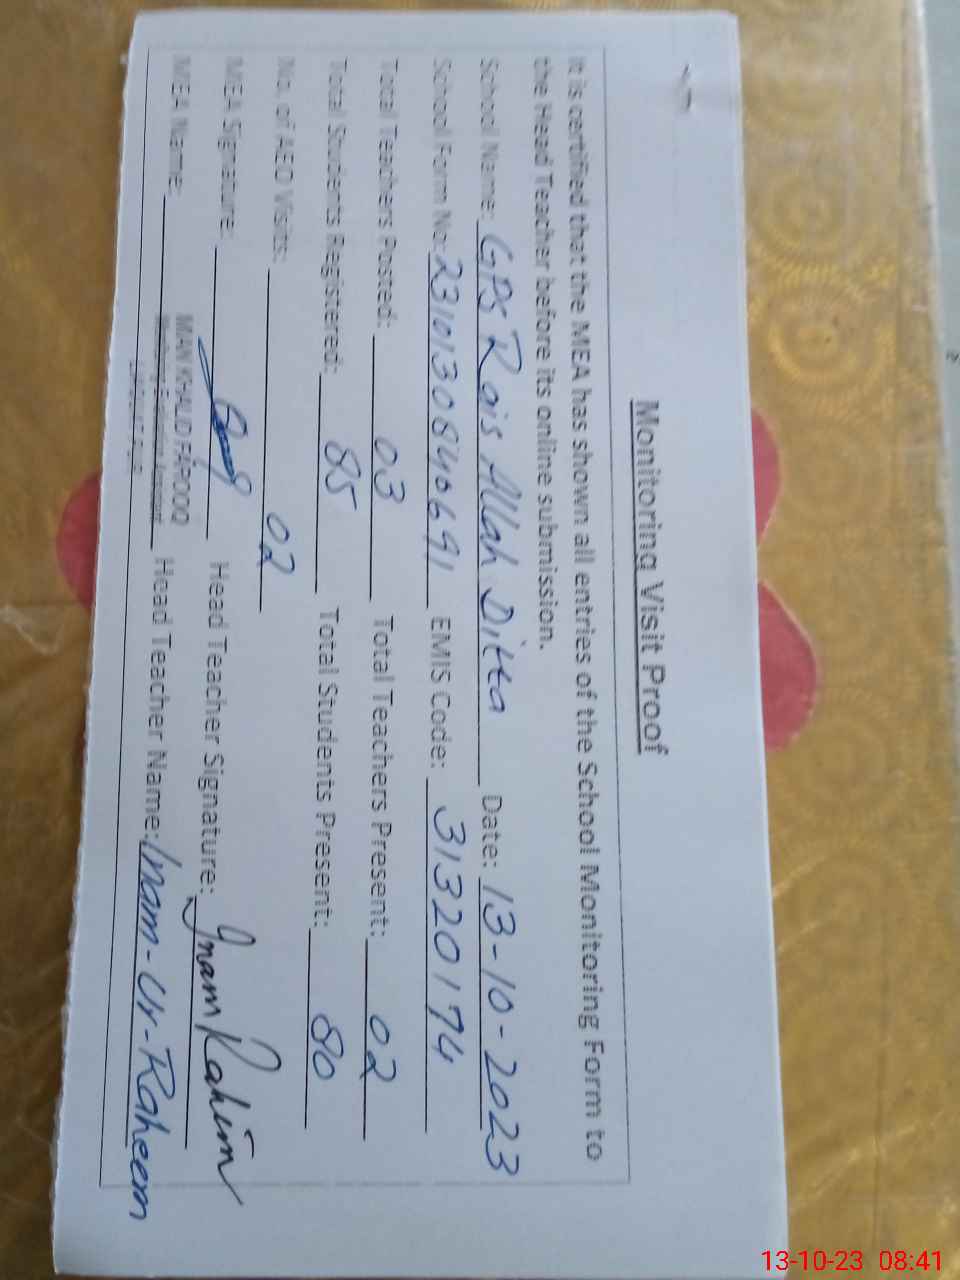 Monitoring Visit Proof
It is certified that the MEA has shown all entries of the School Monitoring Form to
the Head Teacher before its online submission.
School Name: GPS Rais Allah Ditta Date: 13-10-2023
School Form No: 2310130840691 EMIS Code: 31320174
Total Teachers Posted: 03 Total Teachers Present: 02
Total Students Registered: 85 Total Students Present: 80
No. of AEO Visits: 02
MEA Signature: Head Teacher Signature: Inam Rahim
MEA Name: MIAN KHALID FAROOQ Head Teacher Name: Inam-Ur-Raheem
Monitoring Evaluation Assistant
13-10-23 08:41